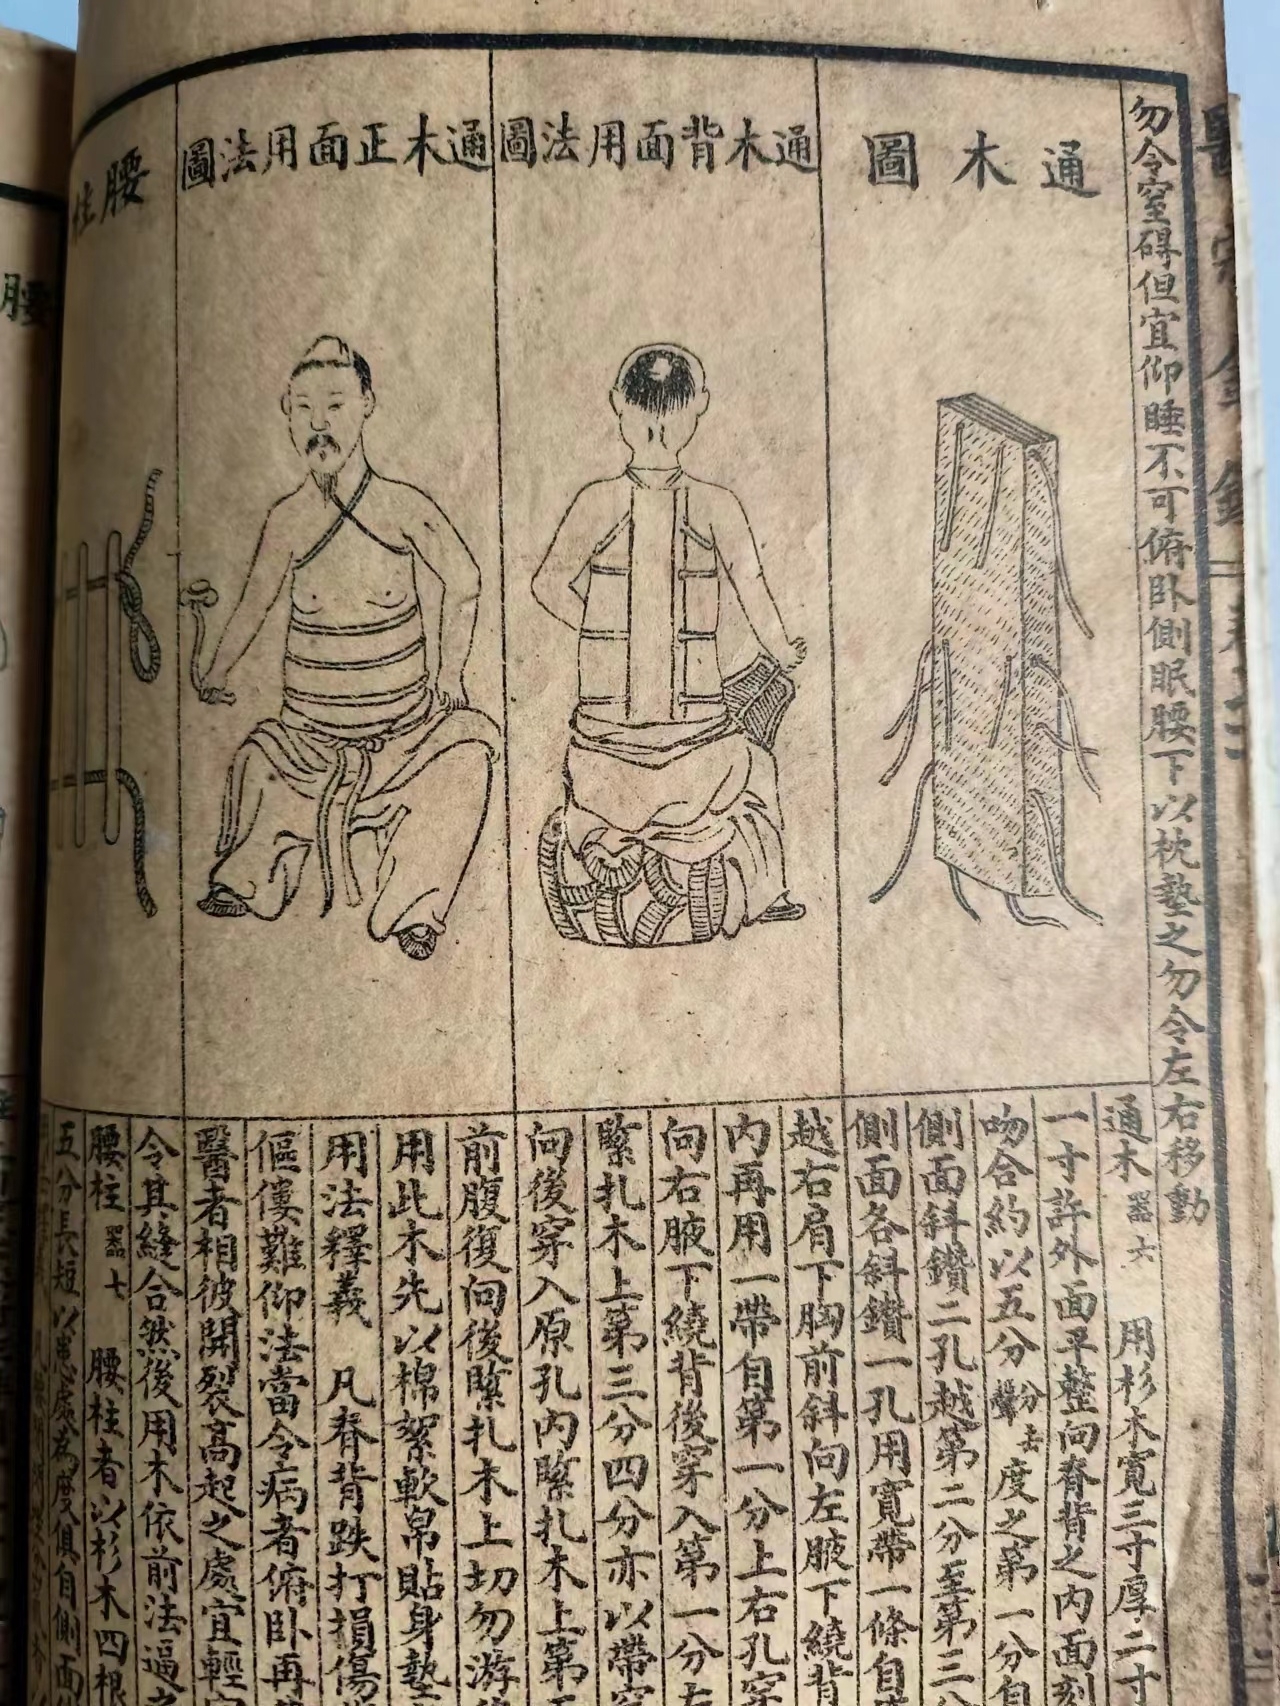 勿令窒碍但宜仰睡不可俯卧側眠腰下以枕墊之勿令左右移動
通木圖
通木背面用法圖
通木正面用法圖
腰柱
通木 器六 用杉木寬三寸厚二寸
一寸許外面平整向脊背之内面刻
吻合約以五分 度之第一分自
側面斜鑽二孔越第二分至第三分
側面各斜鑽一孔用寬帶一條自
越右肩下胸前斜向左腋下繞背
内再用一帶自第一分上右孔穿
向右腋下繞背後穿入第一分左
緊扎木上第三分四分亦以帶穿
向後穿入原孔内緊扎木上第
前腹復向後緊扎木上切勿游
用此木先以棉絮軟帛貼身墊
用法釋義 凡脊背跌打損傷
傴僂難仰法當令病者俯卧再
醫者相彼開裂高起之處宜輕
令其縫合然後用木依前法逼之
腰柱 器七 腰柱者以杉木四根
五分長短以患處為度俱自側面
腰